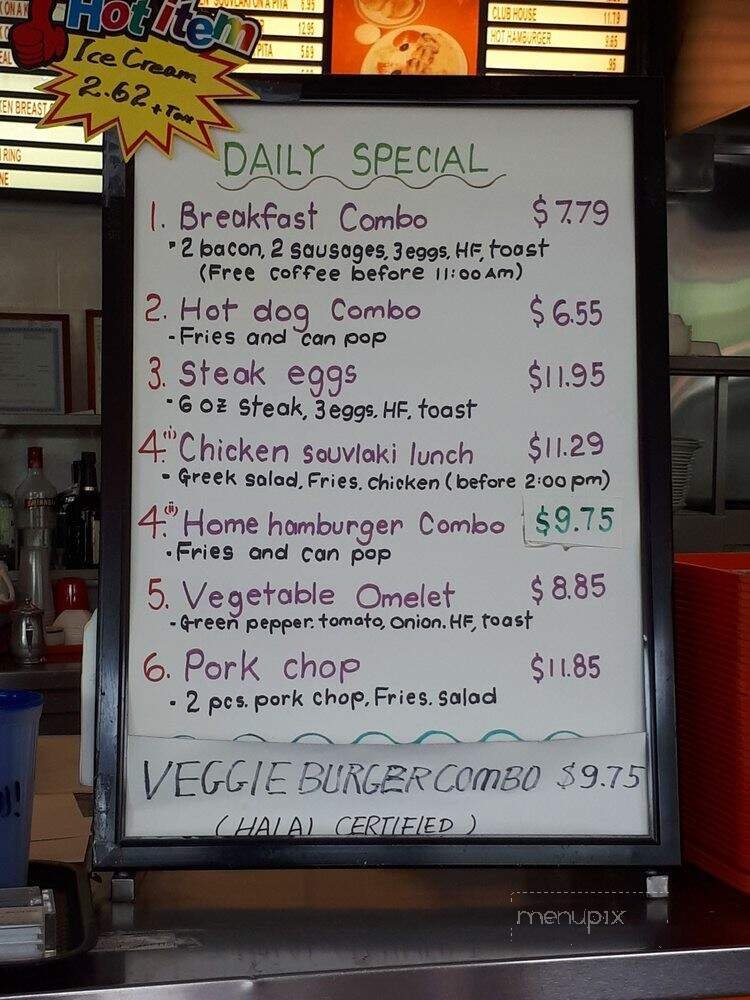 Hot item
Ice Cream
2.62 + Tax
ON A PITA 6.95
12.95
PITA 5.69
CLUB HOUSE 11.79
HOT HAMBURGER 9.65
.95
RING
DAILY SPECIAL
1. Breakfast Combo $7.79
2 bacon, 2 sausages, 3 eggs, HF, toast
(Free coffee before 11:00 AM)
2. Hot dog Combo $6.55
- Fries and can pop
3. Steak eggs $11.95
- 6 oz steak, 3 eggs. HF. toast
4.(i) Chicken souvlaki lunch $11.29
- Greek salad, Fries. chicken (before 2:00 pm)
4.(ii) Home hamburger Combo $9.75
- Fries and can pop
5. Vegetable Omelet $8.85
- Green pepper. tomato, onion. HF, toast
6. Pork chop $11.85
- 2 pcs. pork chop, Fries. salad
VEGGIE BURGER COMBO $9.75
(HALAL CERTIFIED)
menupix